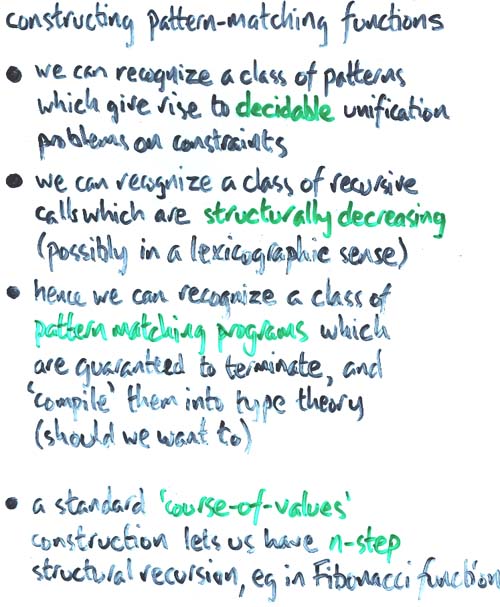 constructing pattern-matching functions
• we can recognize a class of patterns
which give rise to decidable unification
problems on constraints
• we can recognize a class of recursive
calls which are structurally decreasing
(possibly in a lexicographic sense)
• hence we can recognize a class of
pattern matching programs which
are guaranteed to terminate, and
'compile' them into type theory
(should we want to)
• a standard 'course-of-values'
construction lets us have n-step
structural recursion, eg in Fibonacci function